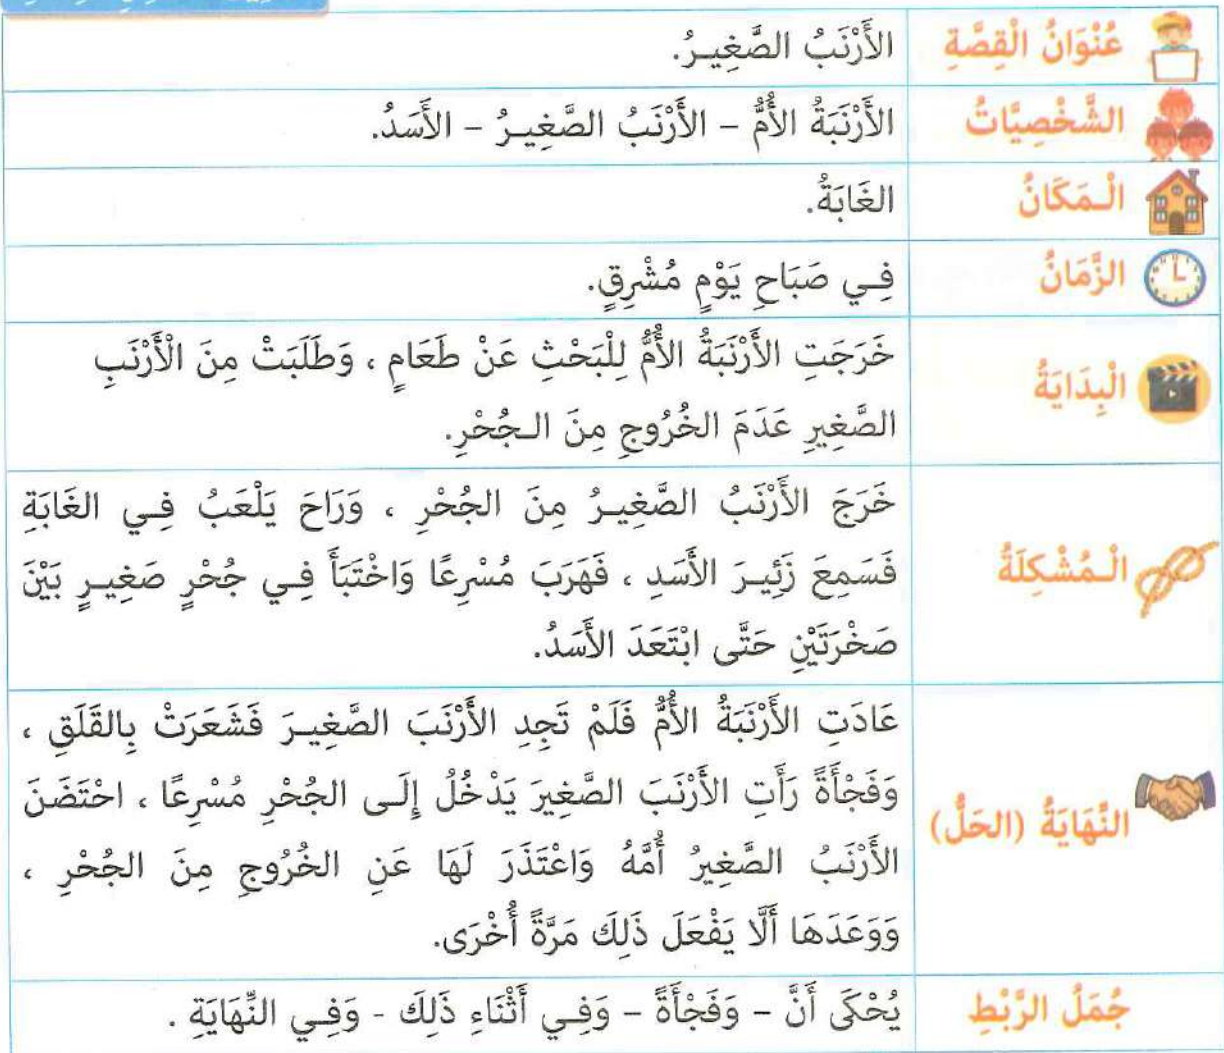 عُنْوَانُ الْقِصَّةِ
الأَرْنَبُ الصَّغِيرُ.
الشَّخْصِيَّاتُ
الأَرْنَبَةُ الأُمُّ – الأَرْنَبُ الصَّغِيرُ – الأَسَدُ.
الْمَكَانُ
الغَابَةُ.
الزَّمَانُ
فِي صَبَاحِ يَوْمٍ مُشْرِقٍ.
الْبِدَايَةُ
خَرَجَتِ الأَرْنَبَةُ الأُمُّ لِلْبَحْثِ عَنْ طَعَامٍ ، وَطَلَبَتْ مِنَ الْأَرْنَبِ
الصَّغِيرِ عَدَمَ الخُرُوجِ مِنَ الجُحْرِ.
الْمُشْكِلَةُ
خَرَجَ الأَرْنَبُ الصَّغِيرُ مِنَ الجُحْرِ ، وَرَاحَ يَلْعَبُ فِي الغَابَةِ
فَسَمِعَ زَئِيرَ الأَسَدِ ، فَهَرَبَ مُسْرِعًا وَاخْتَبَأَ فِي جُحْرٍ صَغِيرٍ بَيْنَ
صَخْرَتَيْنِ حَتَّى ابْتَعَدَ الأَسَدُ.
النِّهَايَةُ (الحَلُّ)
عَادَتِ الأَرْنَبَةُ الأُمُّ فَلَمْ تَجِدِ الأَرْنَبَ الصَّغِيرَ فَشَعَرَتْ بِالقَلَقِ ،
وَفَجْأَةً رَأَتِ الأَرْنَبَ الصَّغِيرَ يَدْخُلُ إِلَى الجُحْرِ مُسْرِعًا ، احْتَضَنَ
الأَرْنَبُ الصَّغِيرُ أُمَّهُ وَاعْتَذَرَ لَهَا عَنِ الخُرُوجِ مِنَ الجُحْرِ ،
وَوَعَدَهَا أَلَّا يَفْعَلَ ذَلِكَ مَرَّةً أُخْرَى.
جُمَلُ الرَّبْطِ
يُحْكَى أَنَّ – وَفَجْأَةً – وَفِي أَثْنَاءِ ذَلِكَ - وَفِي النِّهَايَةِ .